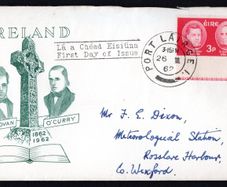 IRELAND
Lá a Chéad Eisiúna
First Day of Issue
PORT LAIRGE
26 III
62
ÉIRE
3P
OVAN
O'CURRY
1862
1962
Mr. F. E. Dixon,
Meteorological Station,
Rosslare Harbour,
Co. Wexford.